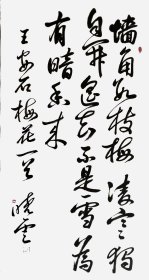 墙角数枝梅凌寒独
自开遥知不是雪為
有暗香来
王安石梅花一首 晓雲